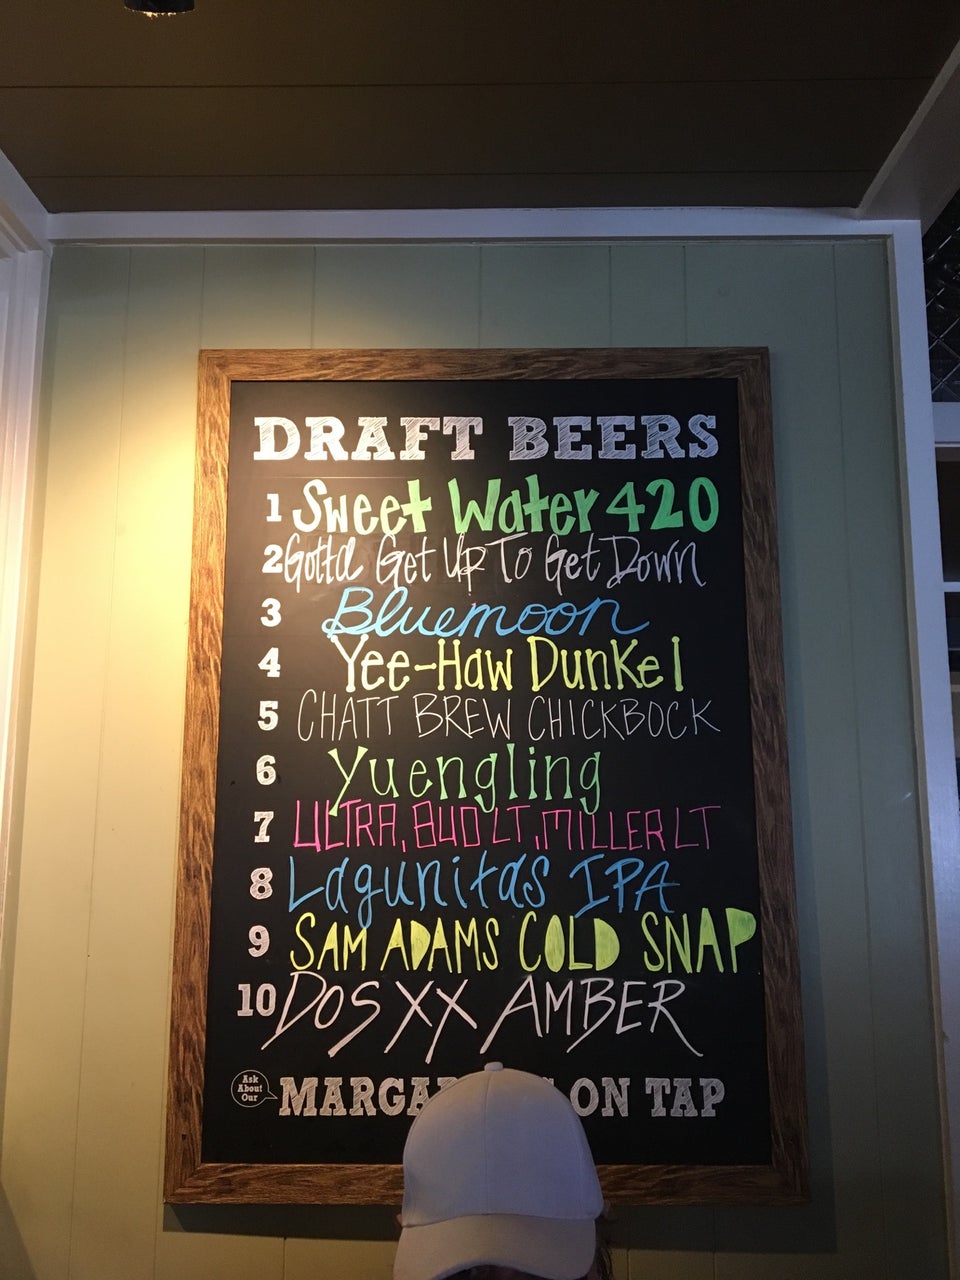 DRAFT BEERS
1 Sweet Water 420
2 Gotta Get Up To Get Down
3 Bluemoon
4 Yee-Haw Dunkel
5 CHATT BREW CHICKBOCK
6 Yuengling
7 ULTRA, BUD LT, MILLER LT
8 Lagunitas IPA
9 SAM ADAMS COLD SNAP
10 DOS XX AMBER
Ask
About
Our
ON TAP